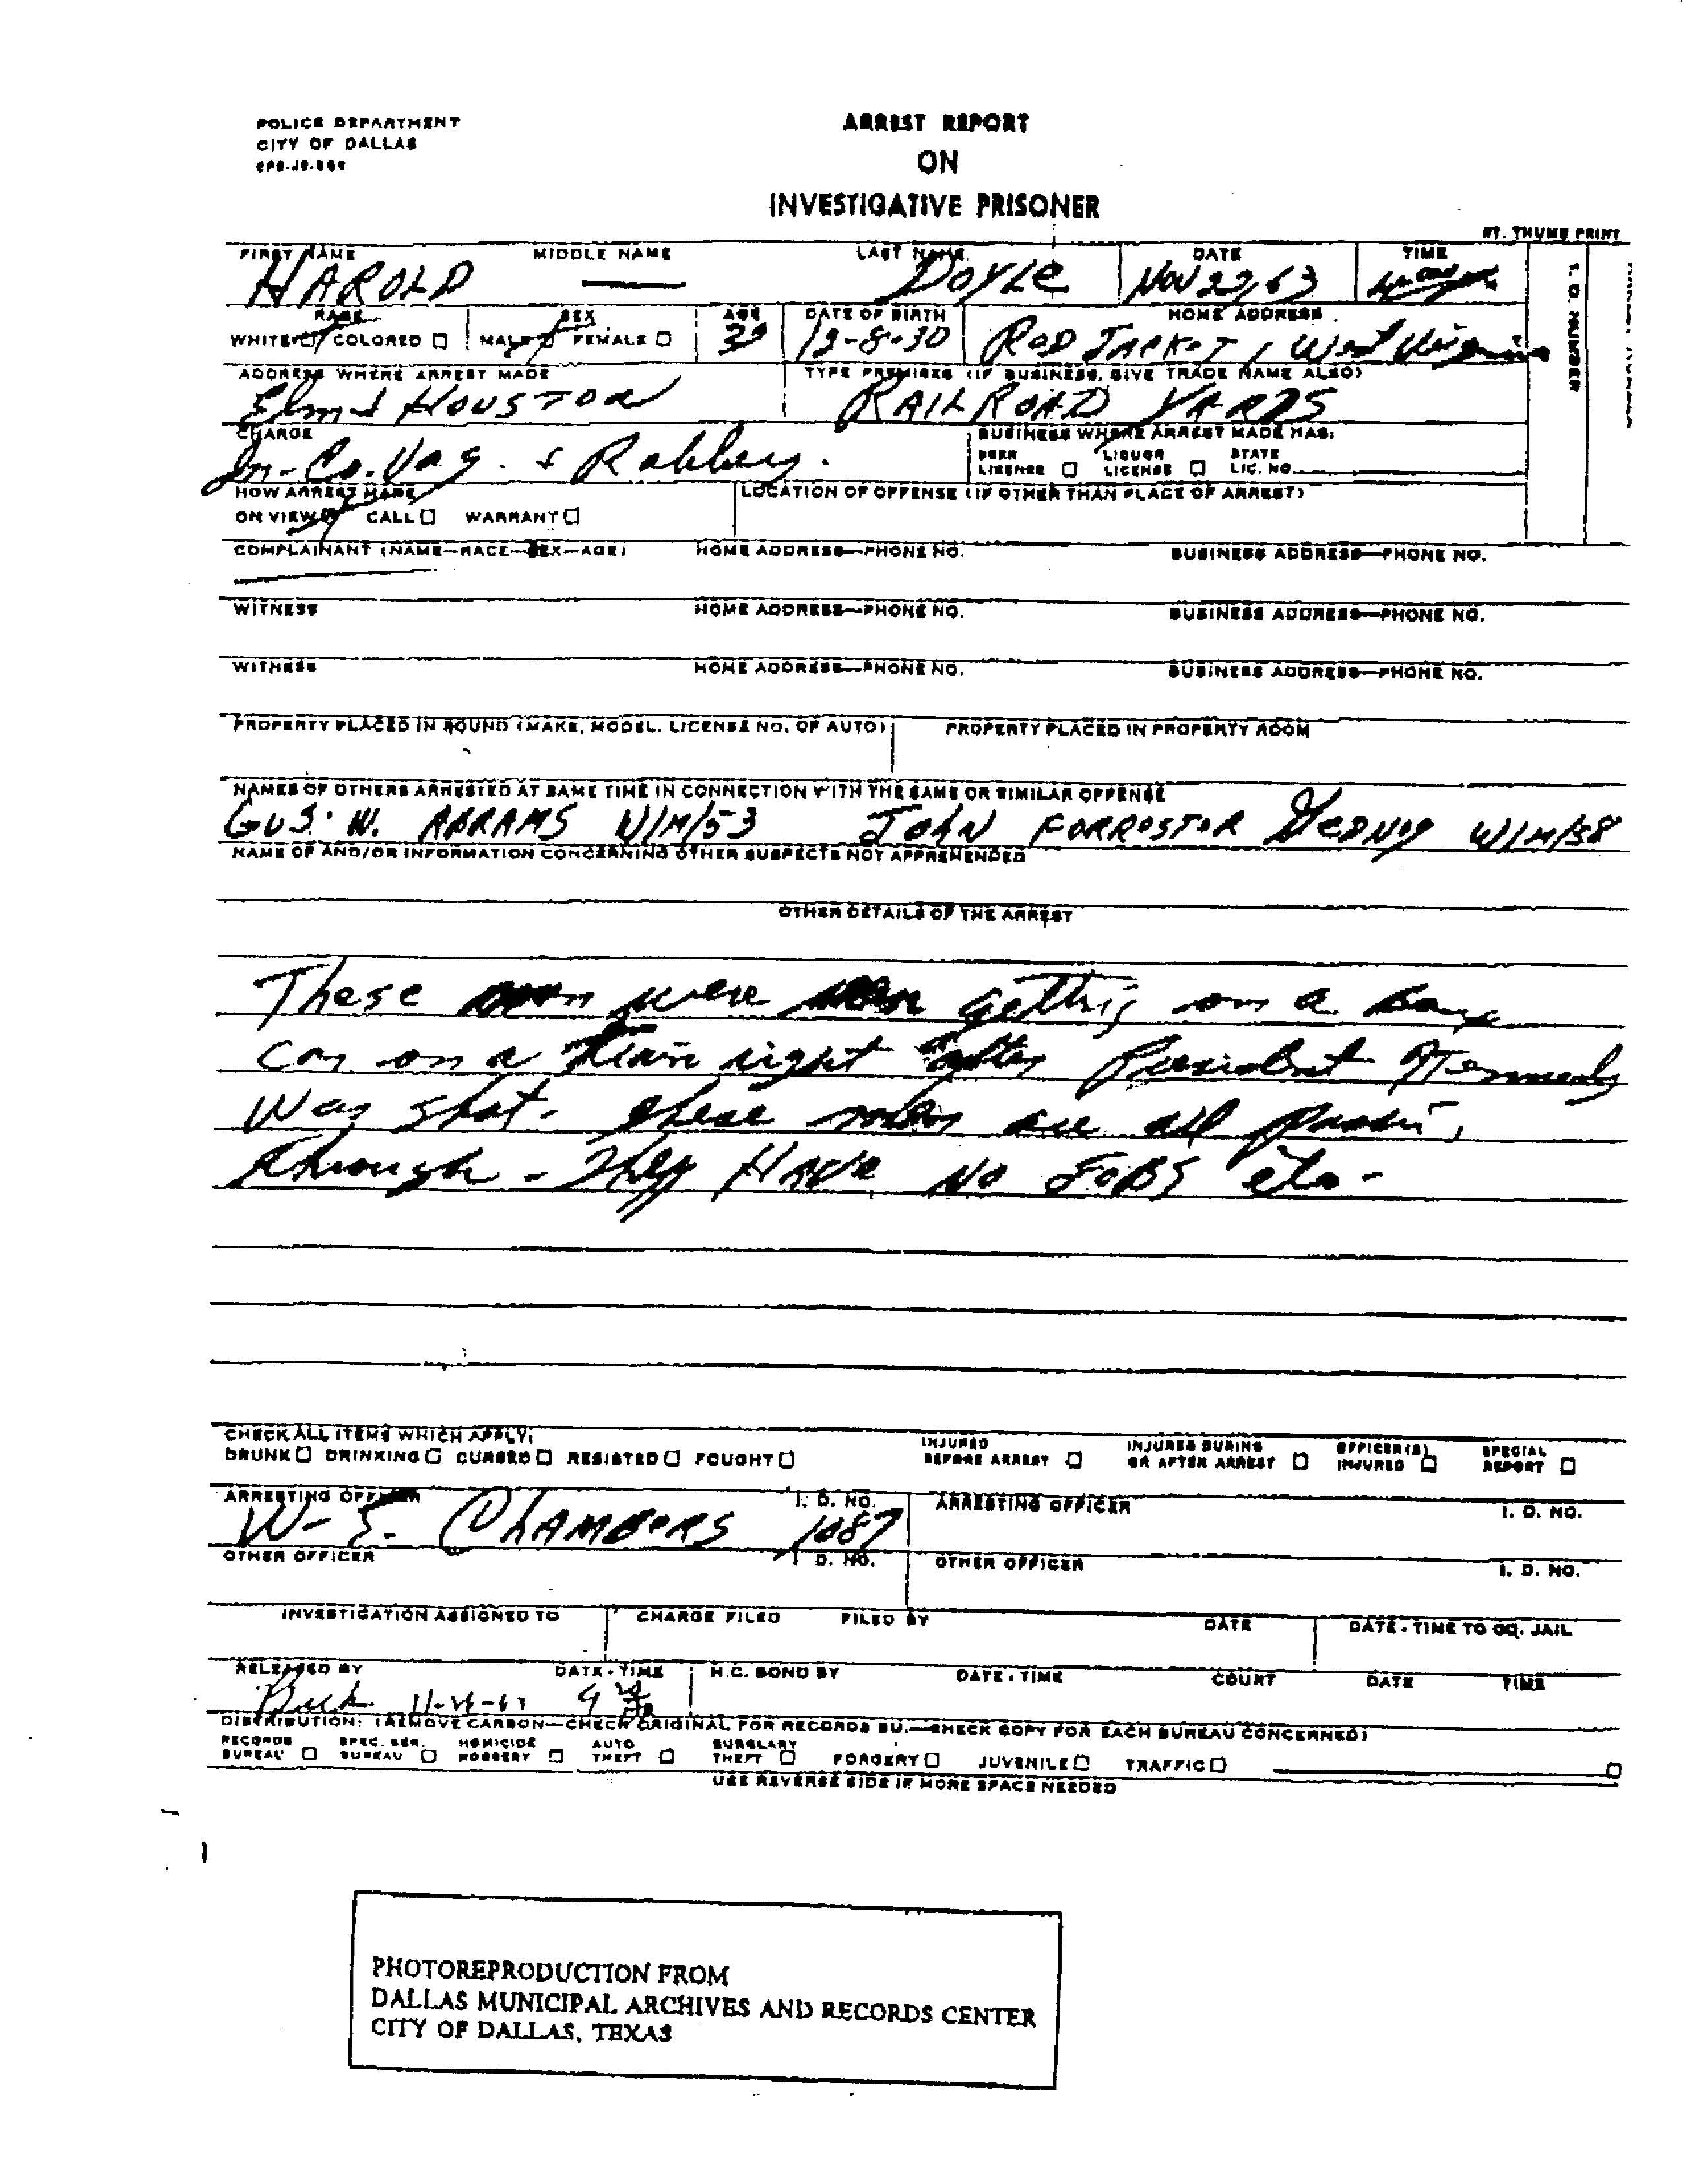 POLICE DEPARTMENT
CITY OF DALLAS
ARREST REPORT
ON
INVESTIGATIVE PRISONER
RT. THUMB PRINT
FIRST NAME MIDDLE NAME LAST NAME DATE TIME
HAROLD — DOYLE NOV 22, 63 4
I. D. NUMBER
RACE SEX AGE DATE OF BIRTH HOME ADDRESS
WHITE COLORED MALE FEMALE 32 12-8-30 RED JACKET, West Virginia
ADDRESS WHERE ARREST MADE TYPE PREMISES (IF BUSINESS, GIVE TRADE NAME ALSO)
Elm & HOUSTON RAILROAD YARDS
CHARGE BUSINESS WHERE ARREST MADE HAS:
In-Co. Vag. & Robbery. BEER LICENSE LIQUOR LICENSE STATE LIC. NO.
HOW ARREST MADE LOCATION OF OFFENSE (IF OTHER THAN PLACE OF ARREST)
ON VIEW CALL WARRANT
COMPLAINANT (NAME—RACE—SEX—AGE) HOME ADDRESS—PHONE NO. BUSINESS ADDRESS—PHONE NO.
WITNESS HOME ADDRESS—PHONE NO. BUSINESS ADDRESS—PHONE NO.
WITNESS HOME ADDRESS—PHONE NO. BUSINESS ADDRESS—PHONE NO.
PROPERTY PLACED IN POUND (MAKE, MODEL, LICENSE NO. OF AUTO) PROPERTY PLACED IN PROPERTY ROOM
NAMES OF OTHERS ARRESTED AT SAME TIME IN CONNECTION WITH THE SAME OR SIMILAR OFFENSE
GUS. W. ABRAMS W/M/53 JOHN FORRESTER GEDNEY W/M/38
NAME OF AND/OR INFORMATION CONCERNING OTHER SUSPECTS NOT APPREHENDED
OTHER DETAILS OF THE ARREST
These men were getting on a Box
car on a train right after President Kennedy
Was shot. These men are all passing
through - They HAVE NO JOBS etc.
CHECK ALL ITEMS WHICH APPLY:
DRUNK DRINKING CURSED RESISTED FOUGHT INJURED BEFORE ARREST INJURED DURING OR AFTER ARREST OFFICER(S) INJURED SPECIAL REPORT
ARRESTING OFFICER I. D. NO. ARRESTING OFFICER I. D. NO.
W- E. CHAMBERS 1087
OTHER OFFICER I. D. NO. OTHER OFFICER I. D. NO.
INVESTIGATION ASSIGNED TO CHARGE FILED FILED BY DATE DATE - TIME TO CO. JAIL
RELEASED BY DATE - TIME H.C. BOND BY DATE - TIME COURT DATE TIME
Beck 9
DISTRIBUTION: (REMOVE CARBON—CHECK ORIGINAL FOR RECORDS BU.—CHECK COPY FOR EACH BUREAU CONCERNED)
RECORDS BUREAU SPEC. SER. BUREAU HOMICIDE ROBBERY AUTO THEFT BURGLARY THEFT FORGERY JUVENILE TRAFFIC
USE REVERSE SIDE IF MORE SPACE NEEDED
PHOTOREPRODUCTION FROM
DALLAS MUNICIPAL ARCHIVES AND RECORDS CENTER
CITY OF DALLAS, TEXAS